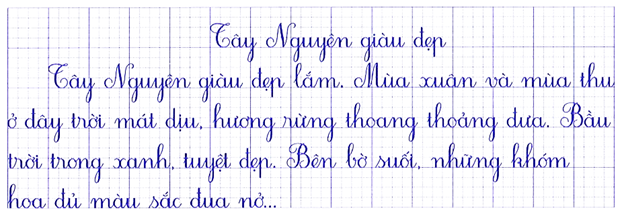 Tây Nguyên giàu đẹp
Tây Nguyên giàu đẹp lắm. Mùa xuân và mùa thu
ở đây trời mát dịu, hương rừng thoang thoảng đưa. Bầu
trời trong xanh, tuyệt đẹp. Bên bờ suối, những khóm
hoa đủ màu sắc đua nở...